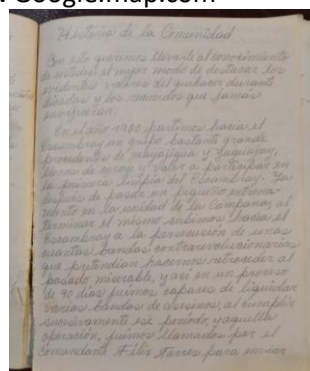 Google.imap.com
Historia de la Comunidad
Con esto queremos llevarle al conocimiento
de ustedes el mejor modo de destacar los
evidentes valores del quehacer durante
décadas y los recuerdos que jamás
envejecerán.
En el año 1960, partimos hacia el
Escambray un grupo bastante grande
procedentes de mayajigua y Yaguajay,
llenos de coraje y valor a participar en
la primera limpia del Escambray. Ya
después de pasado un pequeño entrena-
miento en la unidad de la Campana, al
terminar el mismo subimos hacia el
Escambray a la persecusión de unas
cuantas bandas contrarevolucionarias
que pretendian hacernos retroceder al
pasado miserable, y así en un proceso
de 90 dias fuimos capaces de liquidar
varias bandas de asesinos, al cumplir
sucesivamente ese período, y aquella
operación, fuimos llamados por el
comandante Torres para enviar